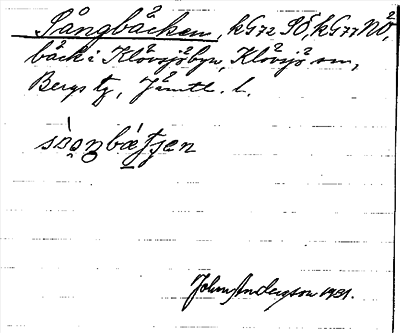 Sångbäcken, kG72 SÖ, kG77 NÖ,
bäck i Klövsjöbyn, Klövsjö sn,
Bergs tg, Jämtl. l.
John Anderson 1931.